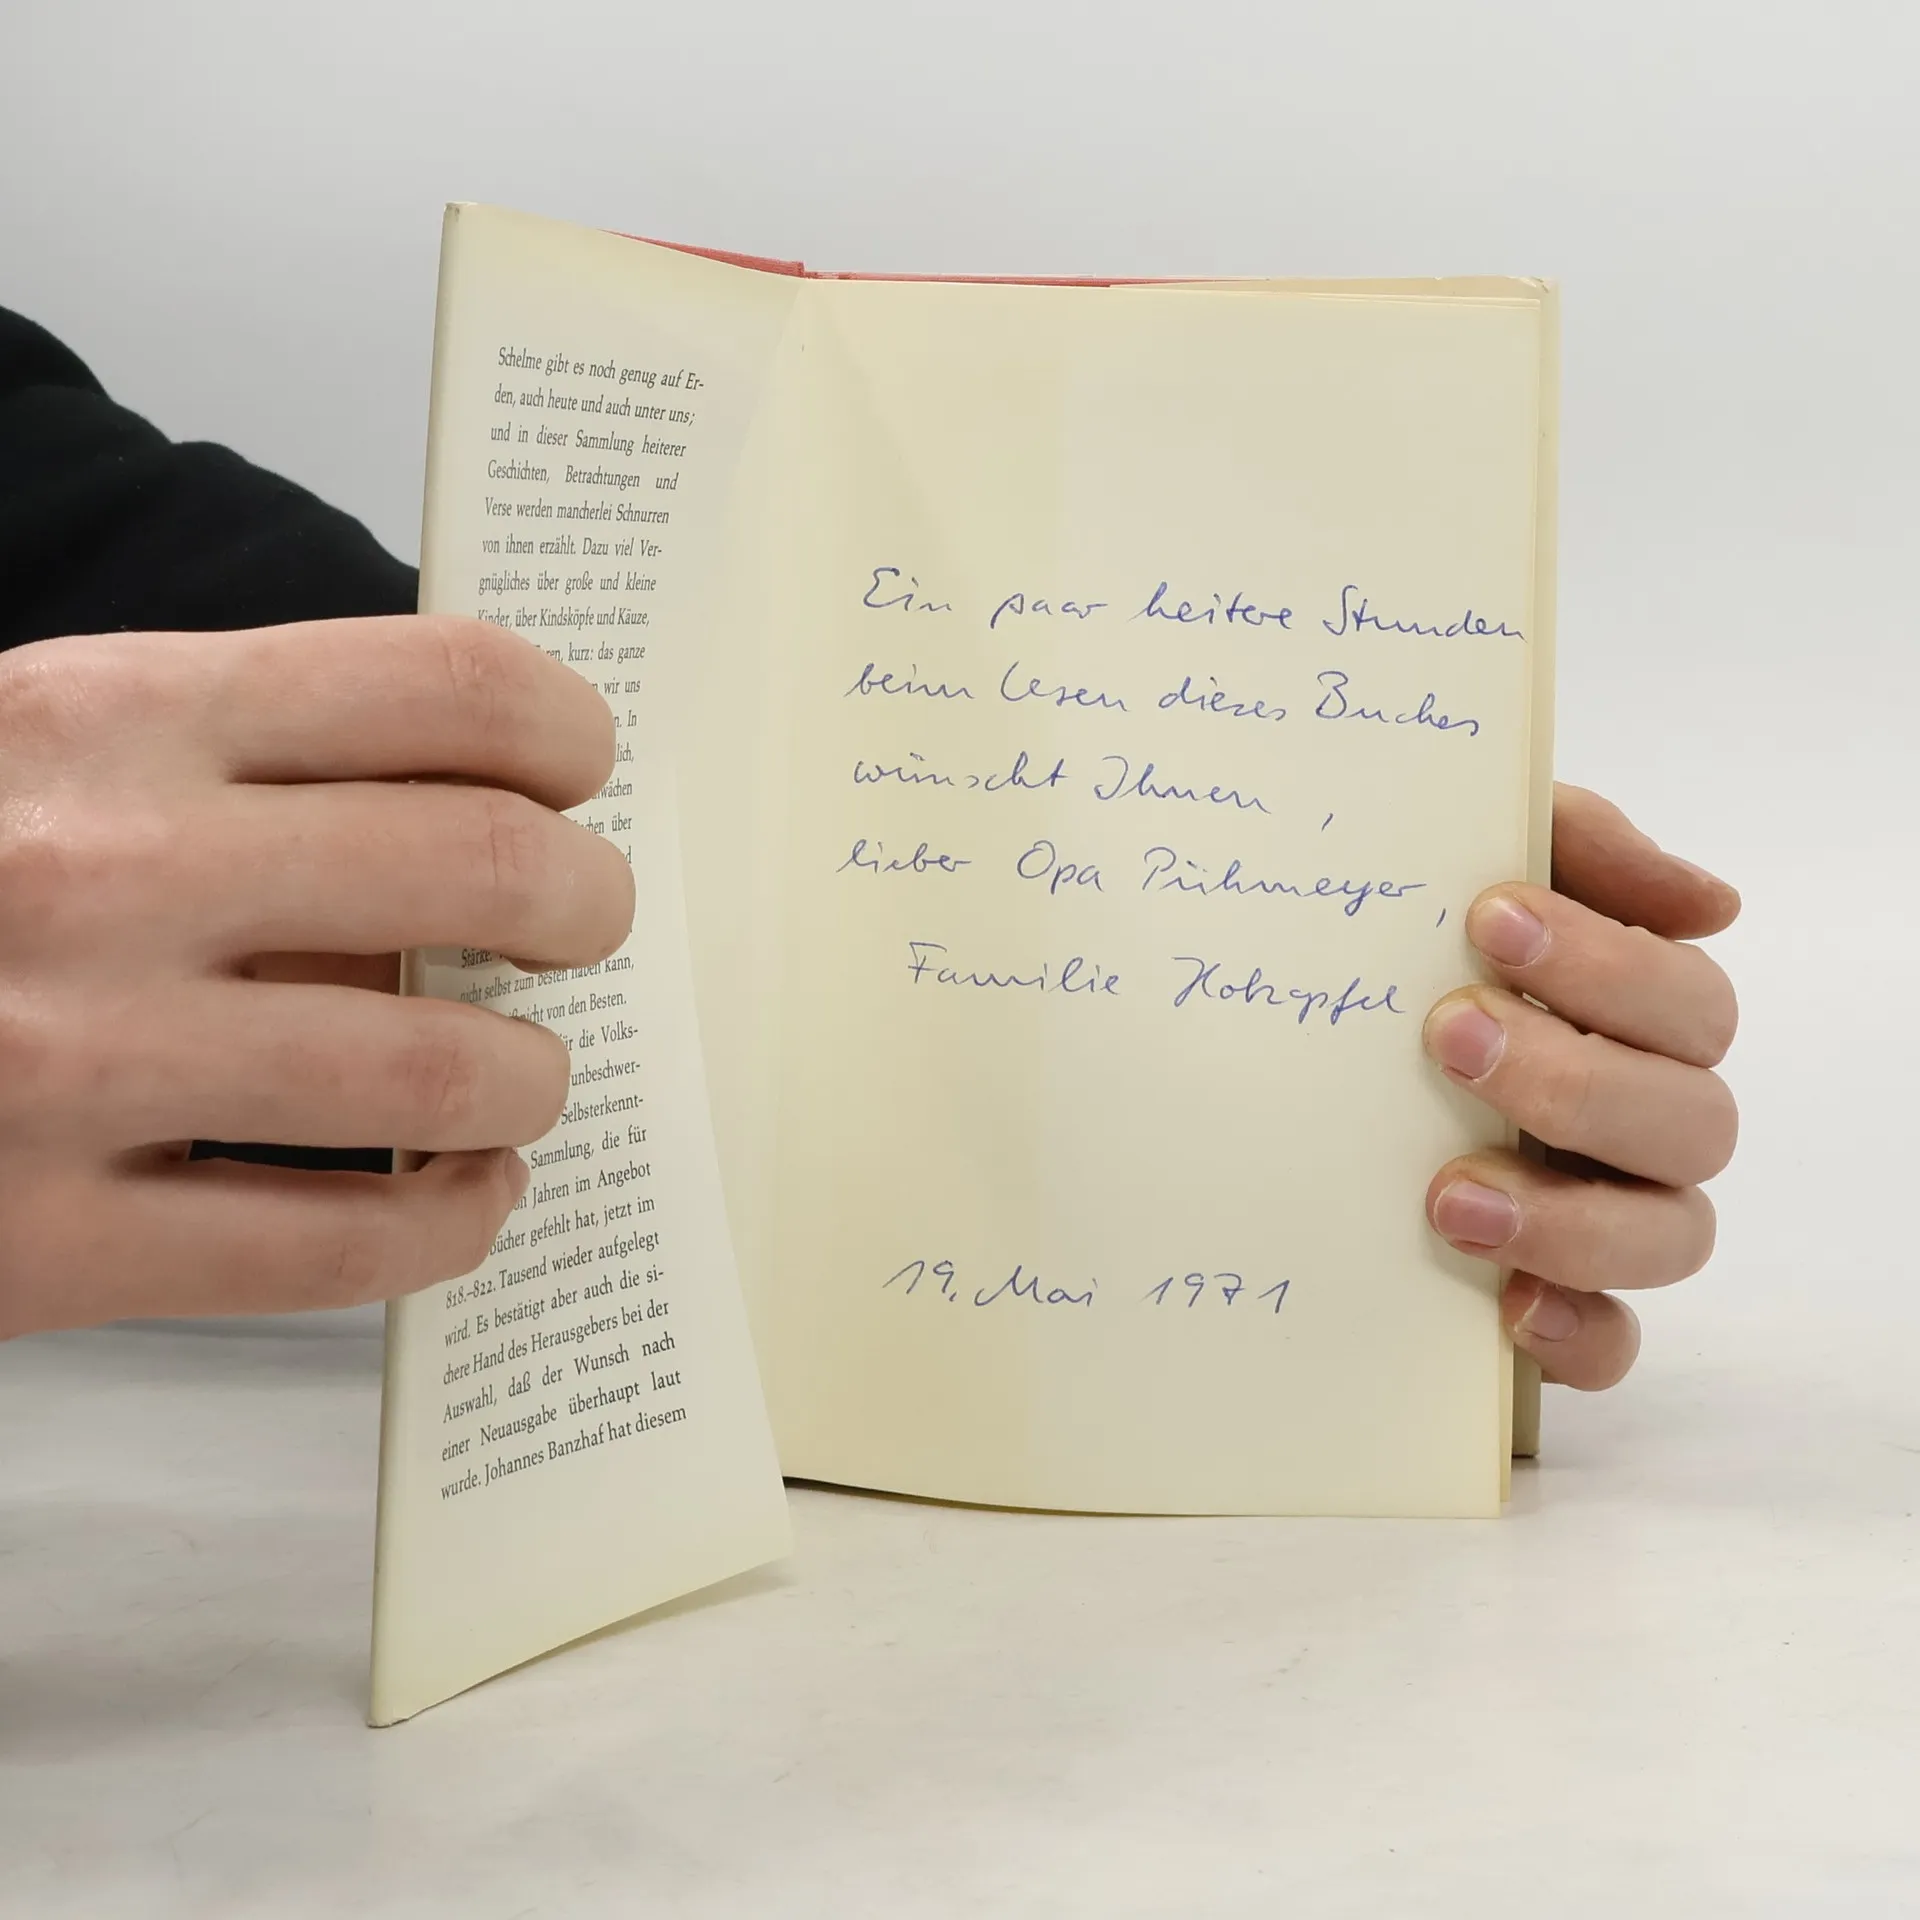 Schelme gibt es noch genug auf Er-
den, auch heute und auch unter uns;
und in dieser Sammlung heiterer
Geschichten, Betrachtungen und
Verse werden mancherlei Schnurren
von ihnen erzählt. Dazu viel Ver-
gnügliches über große und kleine
Kinder, über Kindsköpfe und Käuze,
kurz: das ganze
wir uns
In
über
Stärke.
nicht selbst zum besten haben kann,
nicht von den Besten.
für die Volks-
unbeschwer-
Selbsterkennt-
Sammlung, die für
Jahren im Angebot
bücher gefehlt hat, jetzt im
818.–822. Tausend wieder aufgelegt
wird. Es bestätigt aber auch die si-
chere Hand des Herausgebers bei der
Auswahl, daß der Wunsch nach
einer Neuausgabe überhaupt laut
wurde. Johannes Banzhaf hat diesem
Ein paar heitere Stunden
beim Lesen dieses Buches
wünscht Ihnen,
lieber Opa Pühmeyer,
Familie Holzapfel
19. Mai 1971